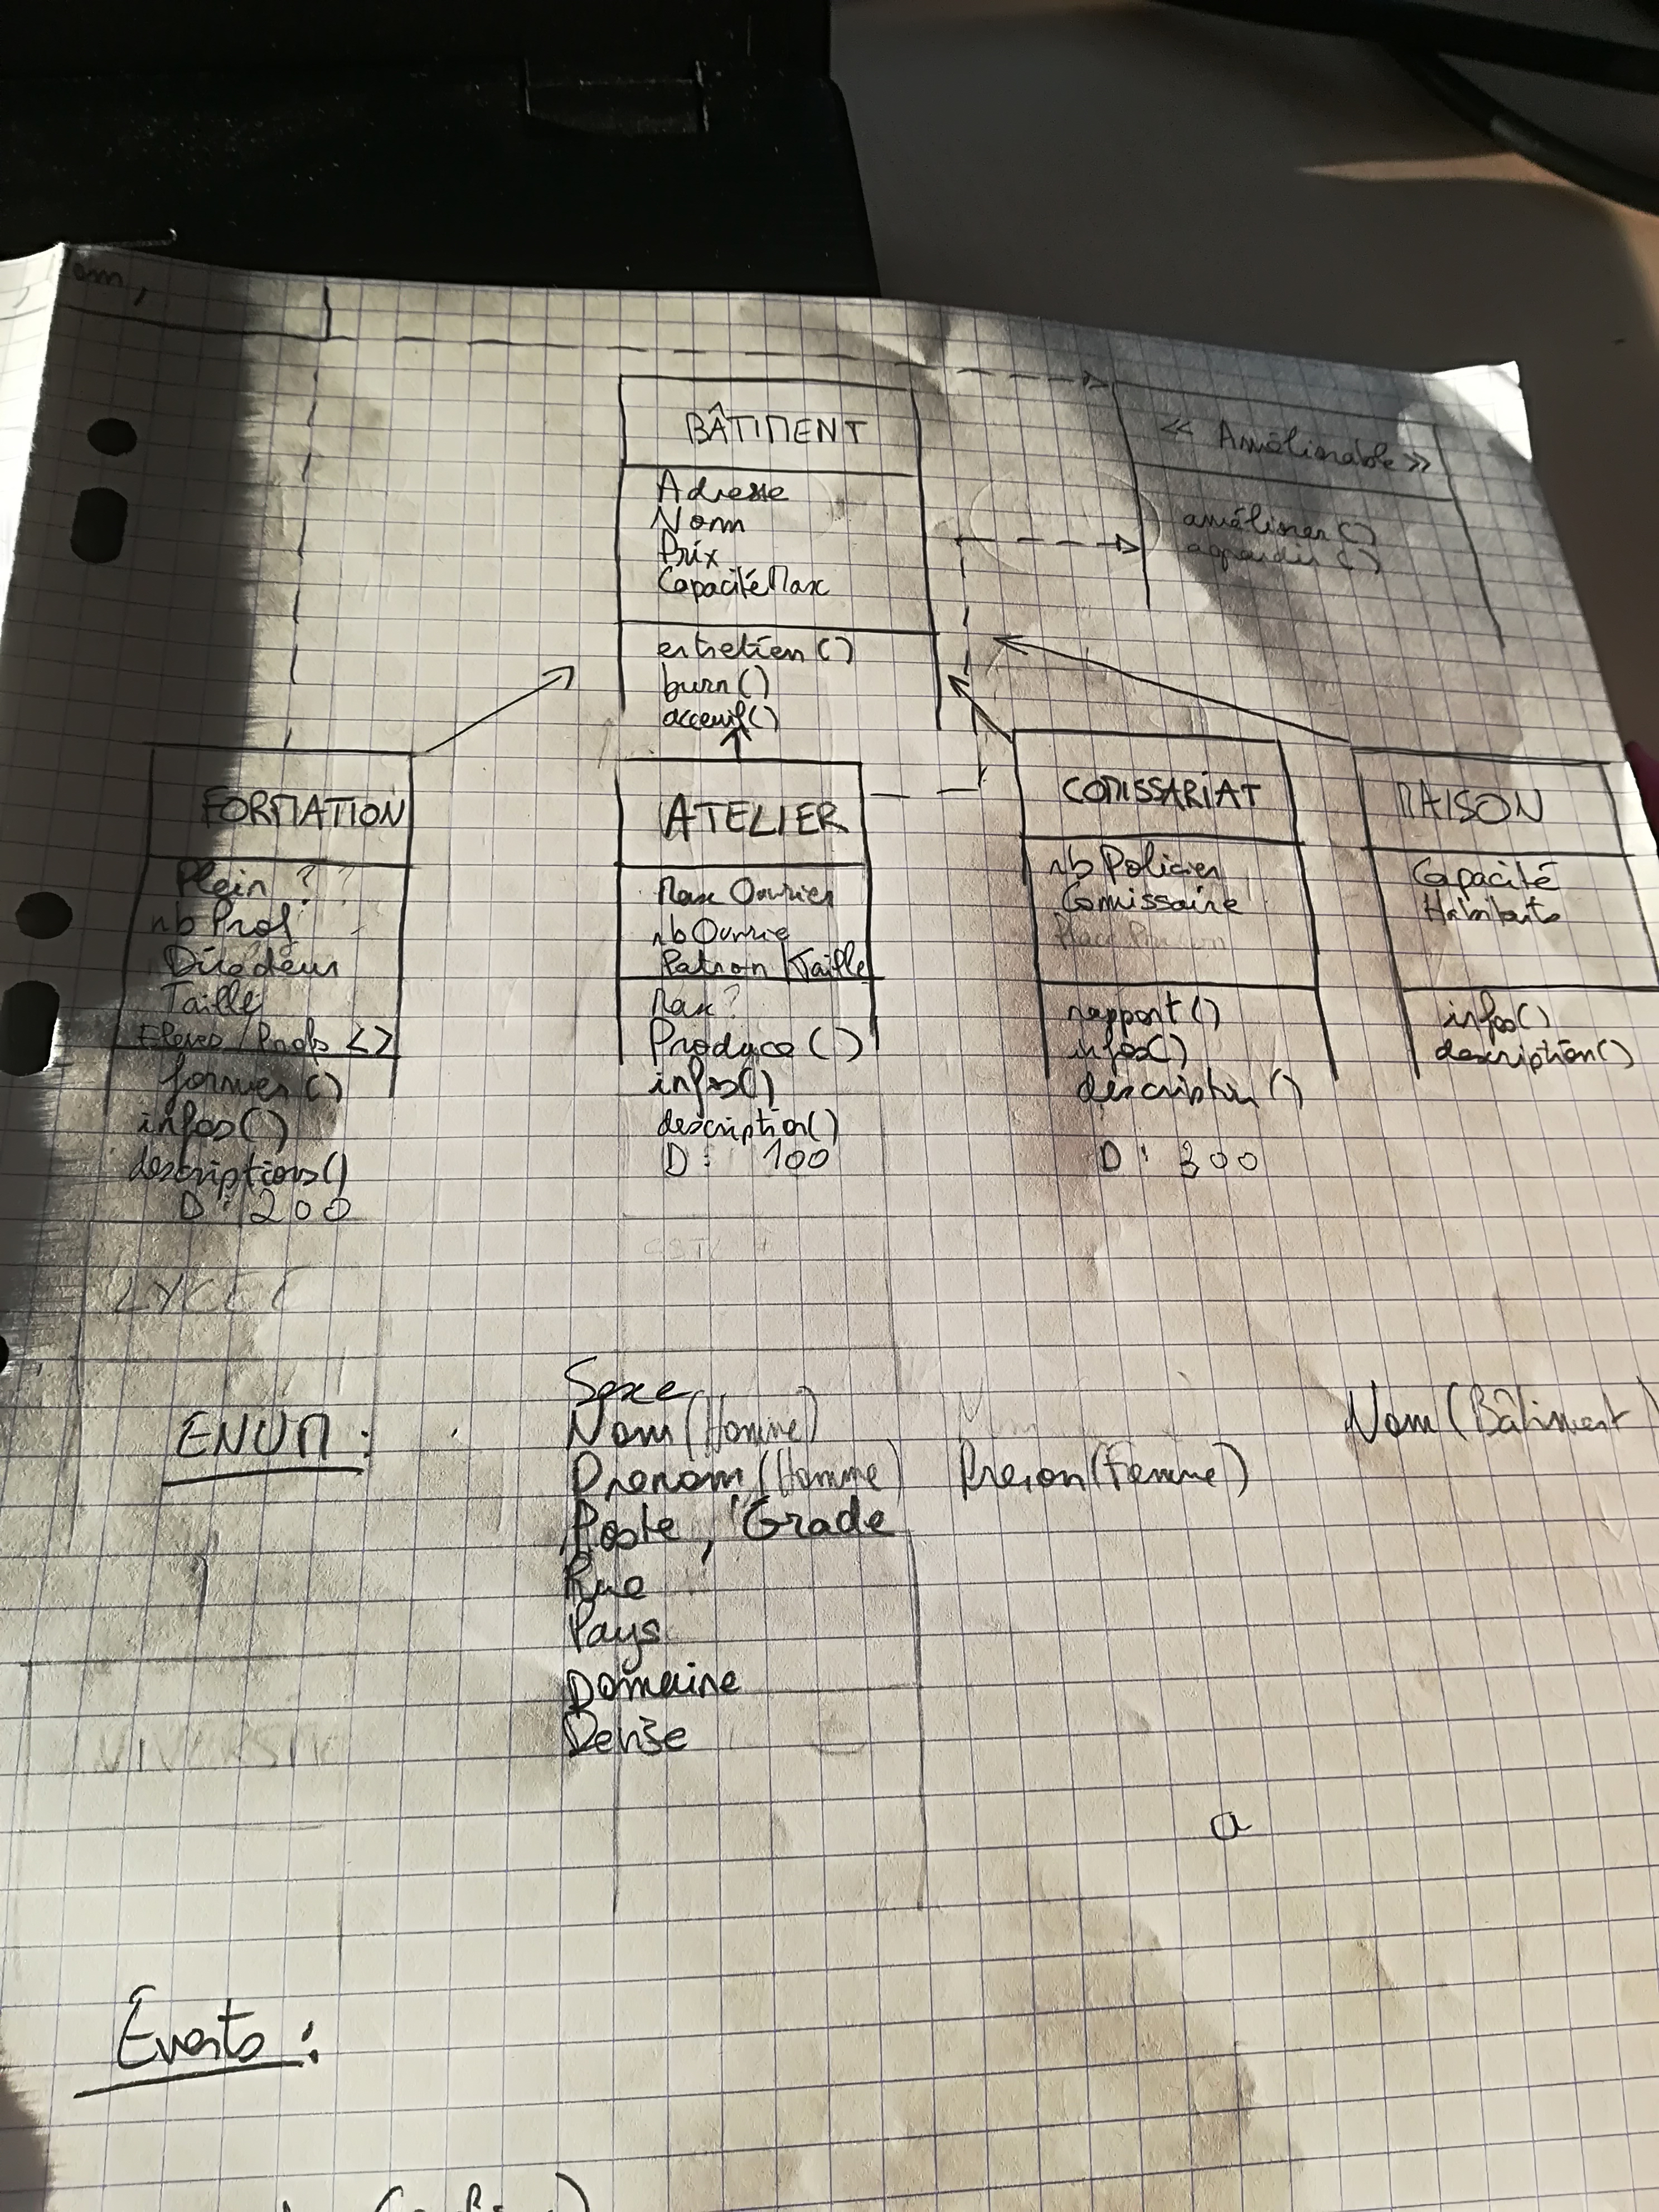 om,
BÂTIMENT
Adresse
Nom
Prix
CapacitéMax
entretien()
burn()
acceuil()
<< Améliorable >>
améliorer()
agrandir()
FORMATION
Plein ? ?
nb Prof
Directeur
Taille
Eleves/Profs <>
former()
infos()
descriptions()
D: 200
ATELIER
Max Ouvrier
nb Ouvrie
Patron | Taille
Max ?
Produce()
infos()
description()
D: 100
COMISSARIAT
nb Policier
Comissaire
rapport()
infos()
description()
D: 300
MAISON
Capacité
Habitants
infos()
description()
LYCEE
ENUM:
Sexe
Nom (Homme)
Nom (Bâtiment)
Prenom (Homme) Prenon (Femme)
Poste, Grade
Rue
Pays
Domaine
Devise
a
Events: